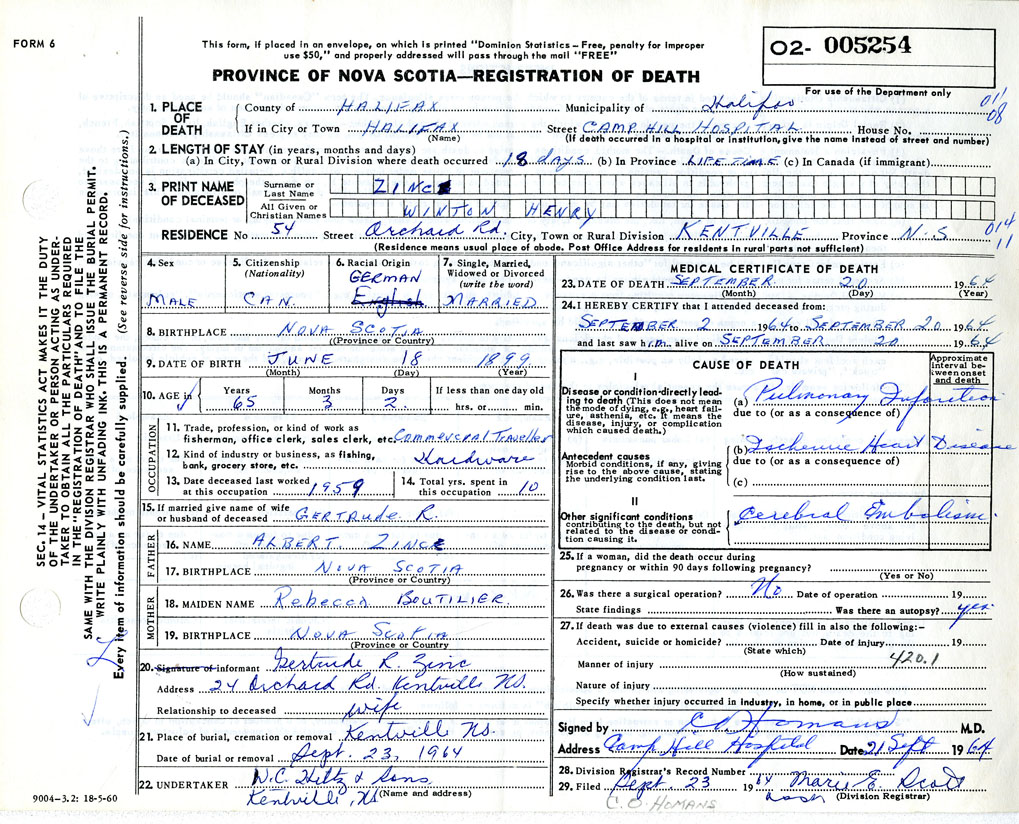 FORM 6
This form, if placed in an envelope, on which is printed "Dominion Statistics – Free, penalty for improper
use $50," and properly addressed will pass through the mail "FREE"
PROVINCE OF NOVA SCOTIA—REGISTRATION OF DEATH
02- 005254
For use of the Department only
1. PLACE OF DEATH County of HALIFAX Municipality of Halifax 011 08
If in City or Town HALIFAX Street CAMP HILL HOSPITAL House No.
(Name) (If death occurred in a hospital or institution, give the name instead of street and number)
2. LENGTH OF STAY (in years, months and days)
(a) In City, Town or Rural Division where death occurred 18 days (b) In Province LIFE TIME (c) In Canada (if immigrant)
3. PRINT NAME OF DECEASED Surname or Last Name ZINCK
All Given or Christian Names WINTON HENRY
RESIDENCE No 54 Street Orchard Rd. City, Town or Rural Division KENTVILLE Province N.S 014 11
(Residence means usual place of abode. Post Office Address for residents in rural parts not sufficient)
4. Sex MALE
5. Citizenship (Nationality) CAN.
6. Racial Origin GERMAN English
7. Single, Married, Widowed or Divorced (write the word) MARRIED
8. BIRTHPLACE NOVA SCOTIA
(Province or Country)
9. DATE OF BIRTH JUNE 18 1899
(Month) (Day) (Year)
10. AGE in Years 65 Months 3 Days 2 If less than one day old hrs. or min.
OCCUPATION
11. Trade, profession, or kind of work as
fisherman, office clerk, sales clerk, etc. Commercral Traveller
12. Kind of industry or business, as fishing,
bank, grocery store, etc. Hardware
13. Date deceased last worked at this occupation 1959
14. Total yrs. spent in this occupation 10
15. If married give name of wife
or husband of deceased GERTRUDE R.
FATHER
16. NAME ALBERT ZINCK
17. BIRTHPLACE NOVA SCOTIA
(Province or Country)
MOTHER
18. MAIDEN NAME Rebecca BOUTILIER
19. BIRTHPLACE NOVA SCOTIA
(Province or Country)
20. Signature of informant Gertrude R. Zinc
Address 24 Orchard Rd. Kentville NS.
Relationship to deceased wife
21. Place of burial, cremation or removal Kentville NS.
Date of burial or removal Sept. 23, 1964
22. UNDERTAKER N.C. Hiltz & Sons,
Kentville, NS (Name and address)
MEDICAL CERTIFICATE OF DEATH
23. DATE OF DEATH SEPTEMBER 20 1964
(Month) (Day) (Year)
24. I HEREBY CERTIFY that I attended deceased from:
SEPTEMBER 2 1964 to SEPTEMBER 20 1964
and last saw him alive on SEPTEMBER 20 1964
CAUSE OF DEATH
Approximate interval between onset and death
I
Disease or condition directly leading to death (This does not mean the mode of dying, e.g., heart failure, asthenia, etc. It means the disease, injury, or complication which caused death.)
(a) Pulmonary Infarction
due to (or as a consequence of)
Antecedent causes
Morbid conditions, if any, giving rise to the above cause, stating the underlying condition last.
(b) Ischemic Heart Disease
due to (or as a consequence of)
(c)
II
Other significant conditions
contributing to the death, but not related to the disease or condition causing it.
Cerebral Embolism.
25. If a woman, did the death occur during
pregnancy or within 90 days following pregnancy?
(Yes or No)
26. Was there a surgical operation? No Date of operation 19
State findings Was there an autopsy? yes
27. If death was due to external causes (violence) fill in also the following:–
Accident, suicide or homicide? Date of injury 19
(State which) 420.1
Manner of injury
(How sustained)
Nature of injury
Specify whether injury occurred in industry, in home, or in public place
Signed by C O Homans M.D.
Address Camp Hill Hospital Date 21 Sept 1964
28. Division Registrar's Record Number
29. Filed Sept. 23 1964 Mary E. Scott
(Division Registrar)
C. O. HOMANS
9004-3.2: 18-5-60
SEC. 14 – VITAL STATISTICS ACT MAKES IT THE DUTY
OF THE UNDERTAKER OR PERSON ACTING AS UNDER-
TAKER TO OBTAIN ALL THE PARTICULARS REQUIRED
IN THE "REGISTRATION OF DEATH" AND TO FILE THE
SAME WITH THE DIVISION REGISTRAR WHO SHALL ISSUE THE BURIAL PERMIT.
WRITE PLAINLY WITH UNFADING INK. THIS IS A PERMANENT RECORD.
Every item of information should be carefully supplied. (See reverse side for instructions.)